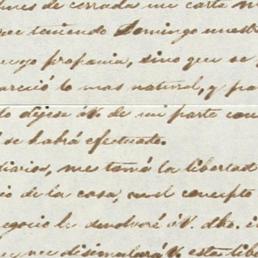 de cerrada me carta
teniendo Domingo nuestr
propania, sino que se
pareció lo mas natural, y pa
to dijese á V. de mi parte con
se habrá efectuado.
diarios, me tomé la libertad
de la casa, en el concepto
negocio le devolveré á V. dho.
que disimulará V. esta libe